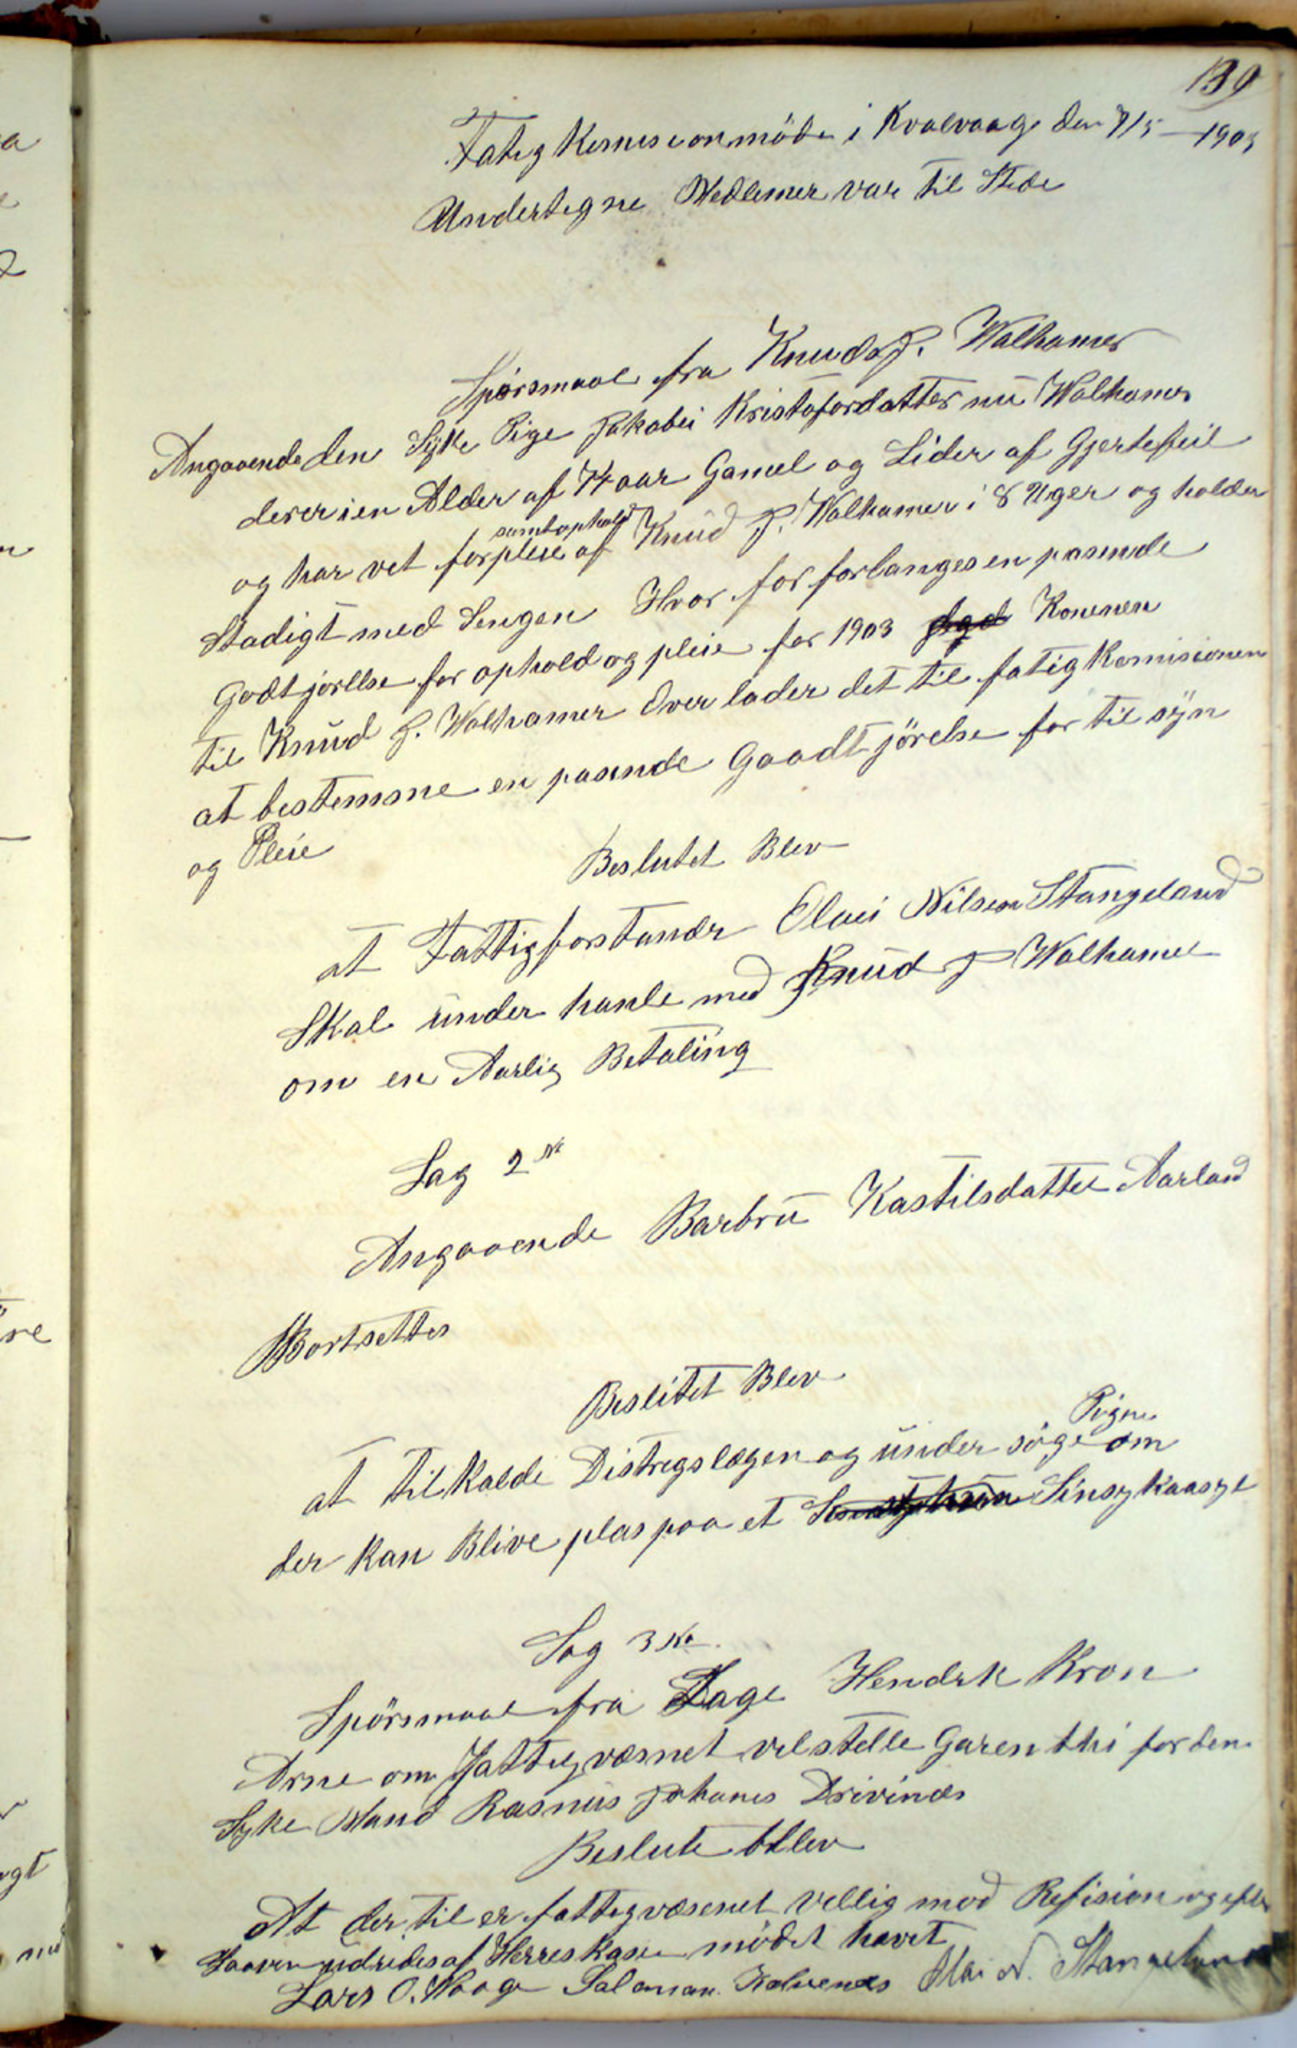 139
Fatigkomisionmöde i Kvalvaag den 7/5 - 1903
Undertegne Medlemer var til Stede
Spörsmaal fra Knud J. Walhamer
Angaaende den Syke Pige Jakobei Kristofordatter nu Walhamer
der er i en Alder af 74 aar Gamel og Lider af Gjertefeil
samt ophold
og har vet forpleie af Knud J. Walhamer i 8 Uger og holder
Stadigt med Sengen Hvor for forlanges en pasende
Godtjörllse for ophold og pleie for 1903 Konenen
til Knud J. Walhamer Over lader det til fatigkomisionen
at bestemme en pasende Gaadtjörelse for til syn
og Pleie
Beslutet Blev
at Fattigforstandr Olai Nilsen Stangeland
Skal under hanle med Knud J Walhamer
om en Aarlig Betaling
Sag 2 No
Angaaende Barbru Kastilsdatter Aarland
Bortsettes
Beslutet Blev
Pigne
at til kalde Distregslægen og under söge om
der kan Blive plas paa et Sinsykaasyl
Sag 3 No
Spörsmaal fra Lage Hendrk Kron
Arne om Fattigvæsnet vel stelle Garenthi for den
Syke Mand Rasmus Johanes Drivinæs
Beslute blev
At der til er fattigvæsenet vellig mod Refision og efter
Laaven udredes af Herreskasen mödet hævet
Lars O. Waage Salaman Kalvenes Olai N. Stangeland